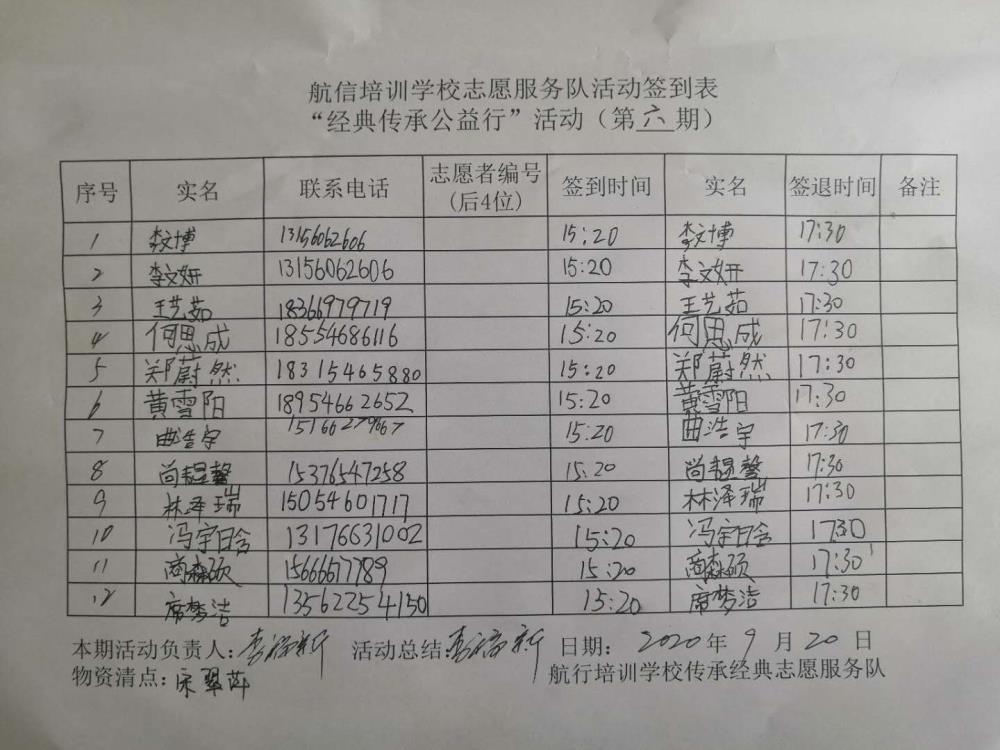 航信培训学校志愿服务队活动签到表
“经典传承公益行”活动（第六期）
序号 实名 联系电话 志愿者编号(后4位) 签到时间 实名 签退时间 备注
1 李文博 13156062606 15:20 李文博 17:30
2 李文妍 13156062606 15:20 李文妍 17:30
3 王艺茹 18366979719 15:20 王艺茹 17:30
4 何思成 18554686116 15:20 何思成 17:30
5 郑蔚然 18315465880 15:20 郑蔚然 17:30
6 黄雪阳 18954662652 15:20 黄雪阳 17:30
7 曲浩宇 15166279667 15:20 曲浩宇 17:30
8 尚韫馨 15376547258 15:20 尚韫馨 17:30
9 林泽瑞 15054601717 15:20 林泽瑞 17:30
10 冯宇晗 13176631002 15:20 冯宇晗 17:30
11 商森硕 15666677789 15:20 商森硕 17:30
12 席梦洁 13562254150 15:20 席梦洁 17:30
本期活动负责人: 活动总结: 日期: 2020年9月20日
物资清点: 宋翠萍 航行培训学校传承经典志愿服务队